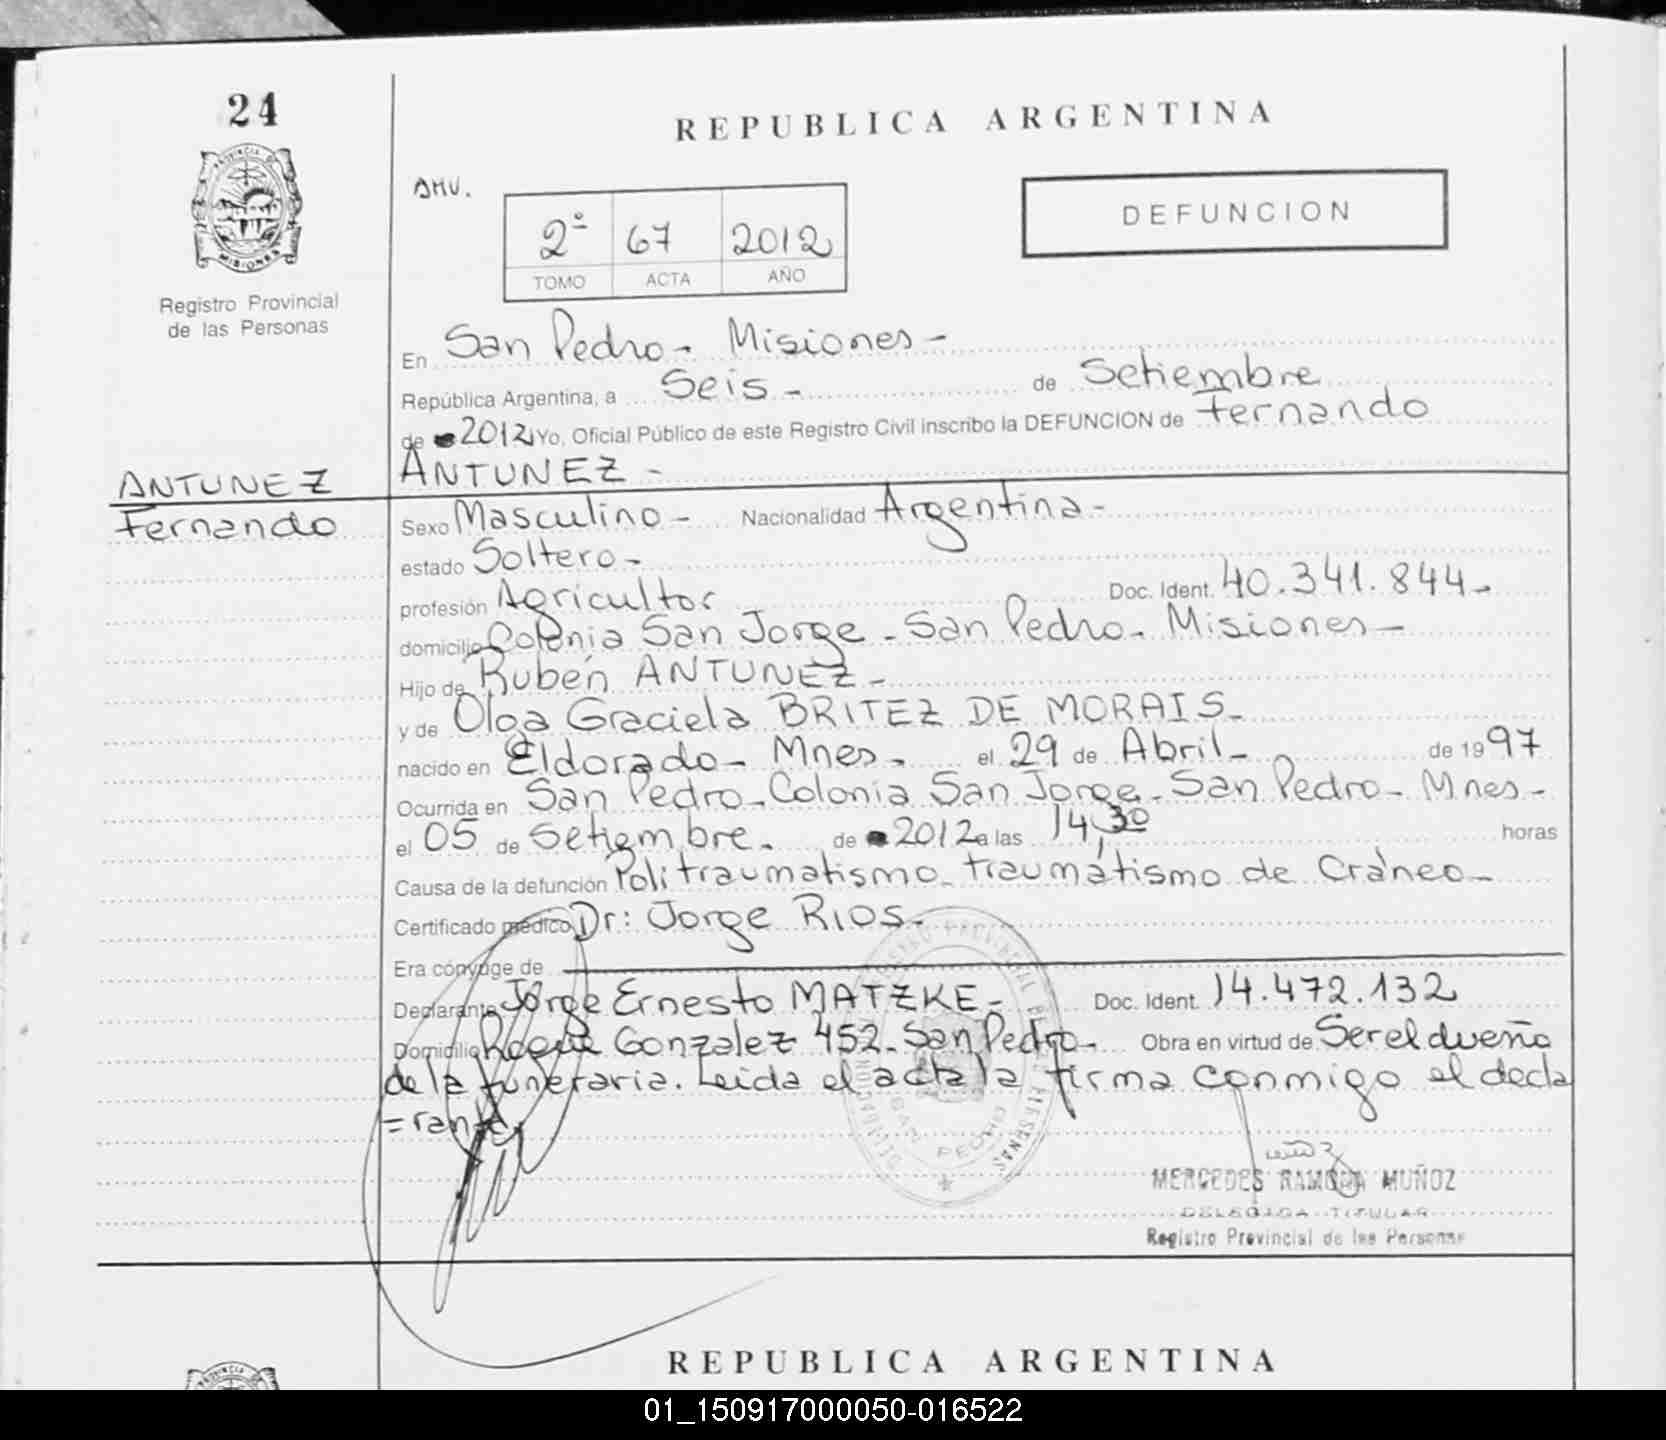 24
REPUBLICA ARGENTINA
PROVINCIA DE
MISIONES
DEFUNCION
2º 67 2012
TOMO ACTA AÑO
Registro Provincial
de las Personas
En San Pedro - Misiones -
República Argentina, a Seis - de Setiembre
de 2012 Yo, Oficial Público de este Registro Civil inscribo la DEFUNCION de Fernando
ANTUNEZ -
ANTUNEZ
Fernando
Sexo Masculino - Nacionalidad Argentina -
estado Soltero -
profesión Agricultor Doc. Ident. 40.341.844 -
domicilio Colonia San Jorge - San Pedro - Misiones -
Hijo de Rubén ANTUNEZ -
y de Olga Graciela BRITEZ DE MORAIS -
nacido en Eldorado - Mnes - el 29 de Abril - de 1997
Ocurrida en San Pedro - Colonia San Jorge - San Pedro - Mnes -
el 05 de Setiembre - de 2012 a las 14,30 horas
Causa de la defunción Politraumatismo - traumatismo de Cráneo -
Certificado médico Dr: Jorge RIOS -
Era cónyuge de
Declarante Jorge Ernesto MATZKE - Doc. Ident. 14.472.132
Domicilio Roque Gonzalez 452 - San Pedro - Obra en virtud de Ser el dueño
de la funeraria. Leida el acta la firma conmigo el decla
=rante,
SAN PEDRO
MERCEDES RAMONA MUÑOZ
DELEGADA TITULAR
Registro Provincial de las Personas
REPUBLICA ARGENTINA
01_150917000050-016522